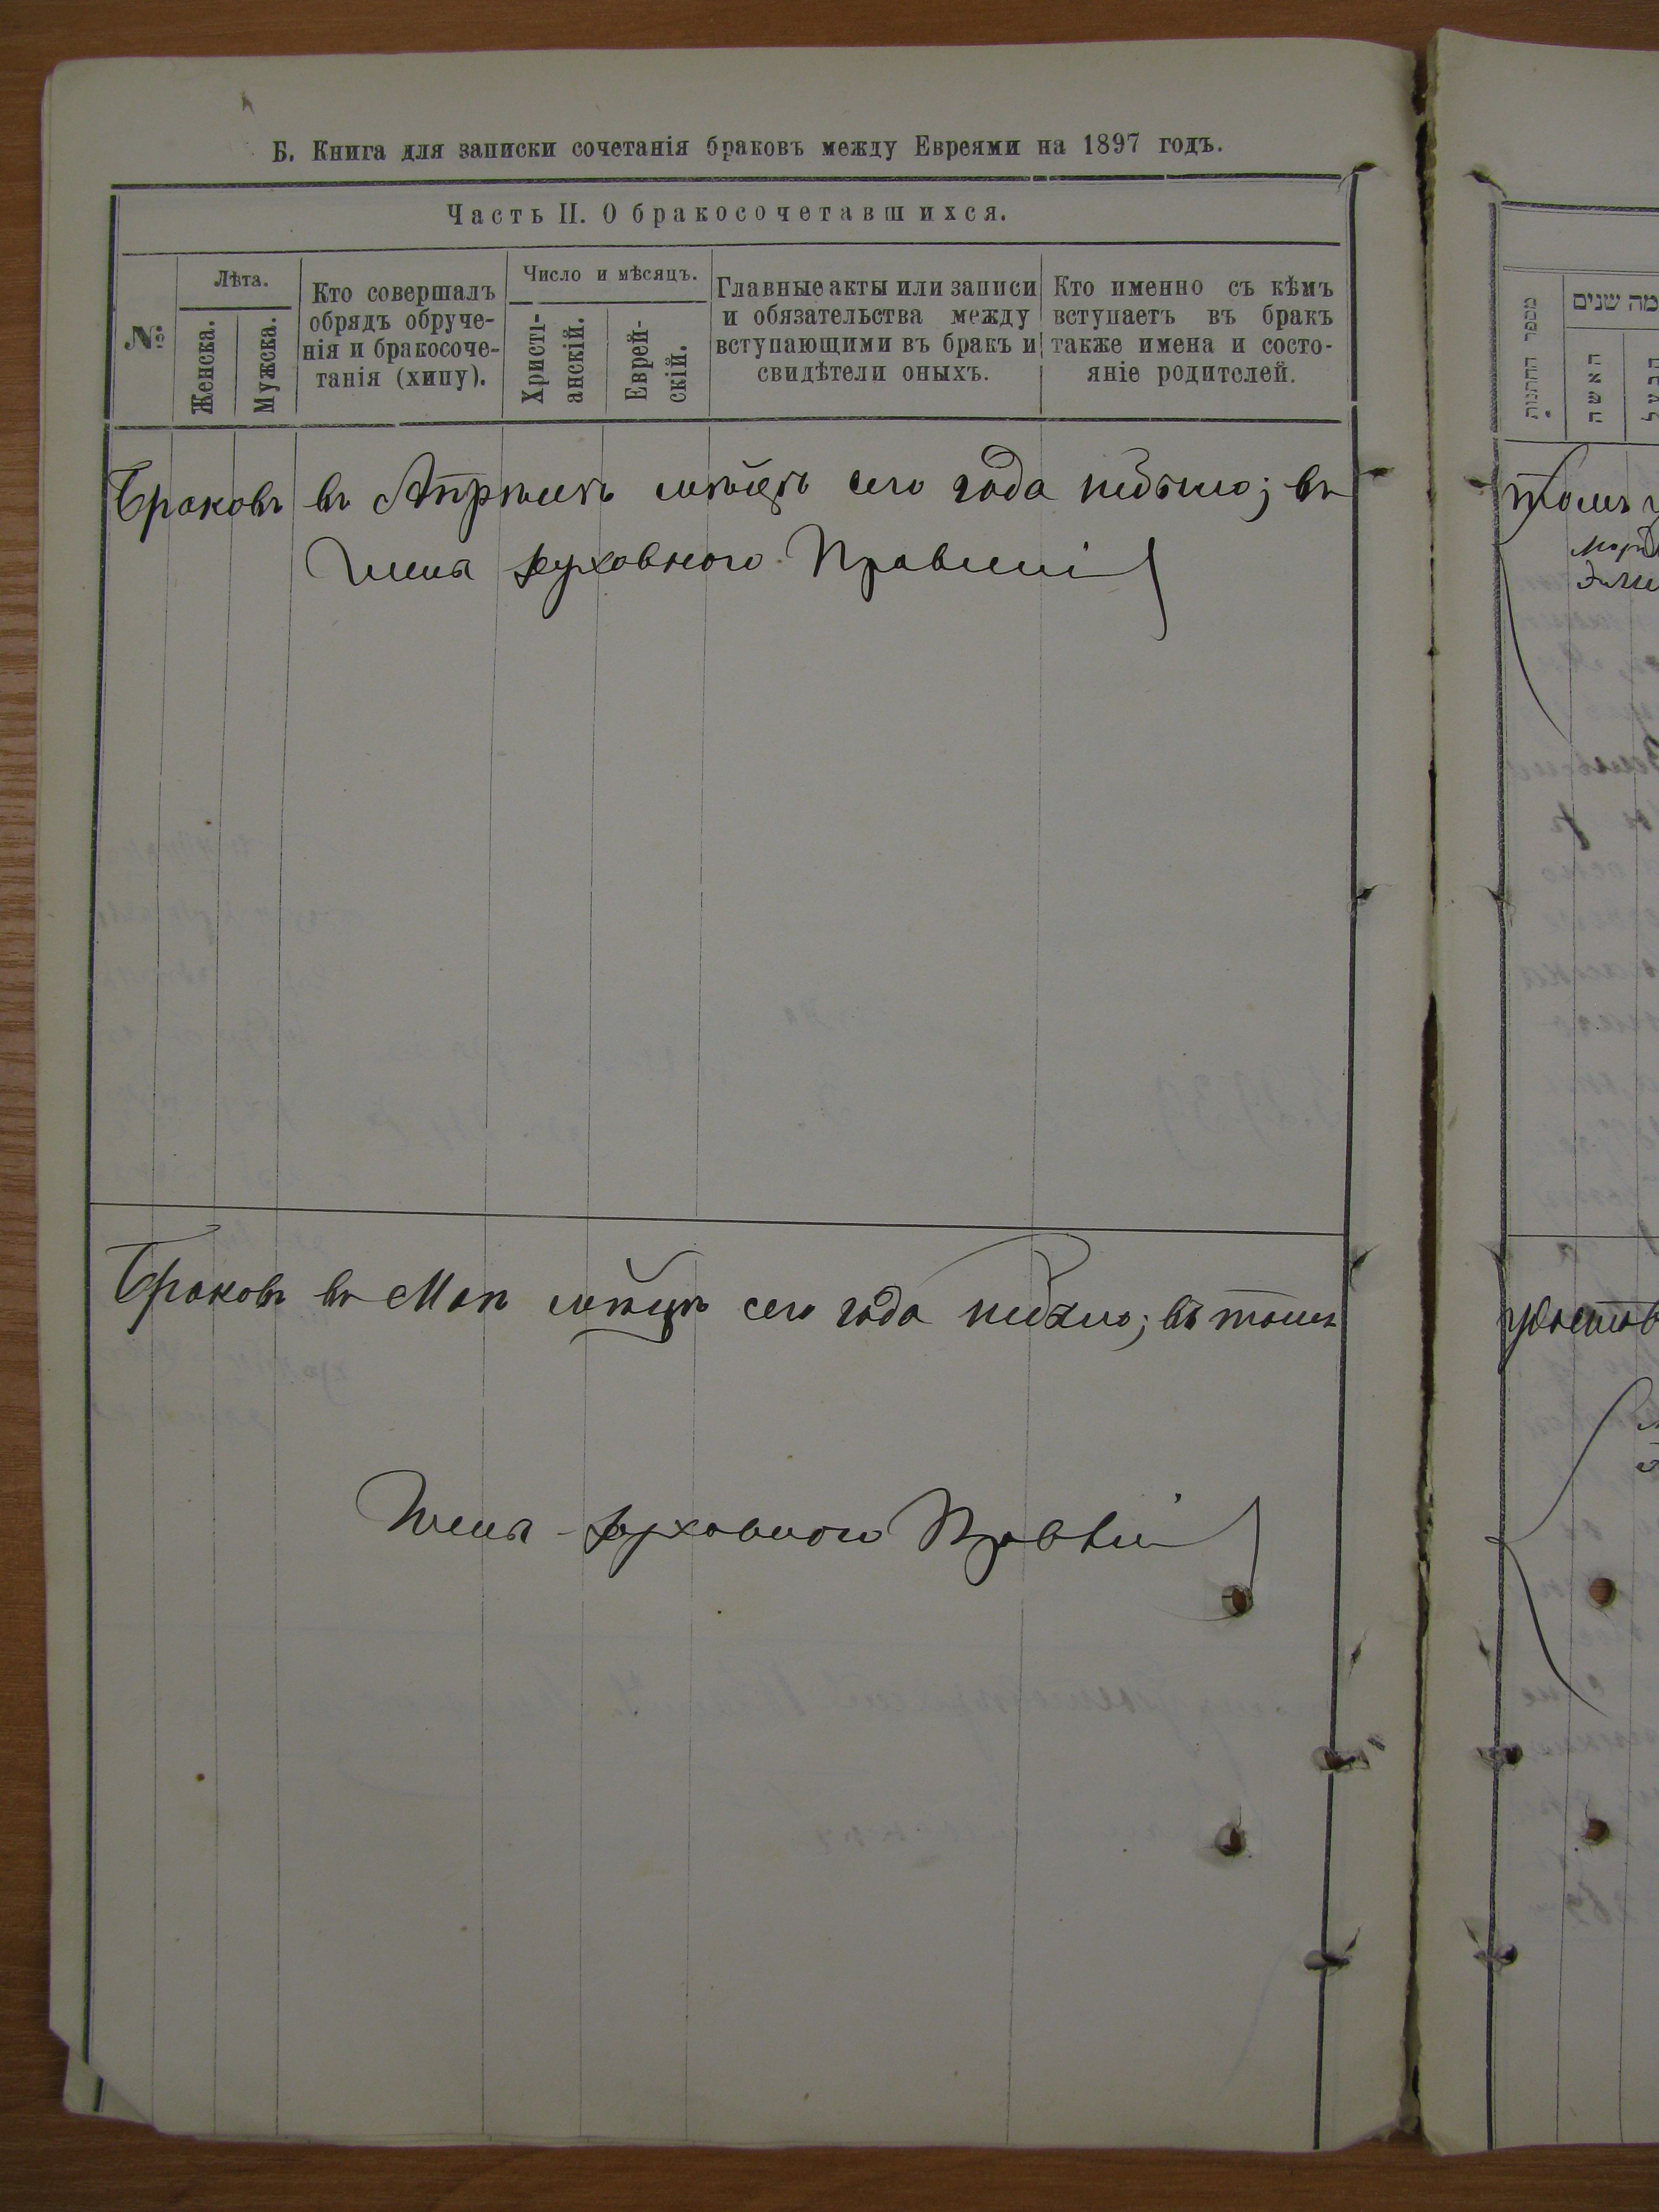 Б. Книга для записки сочетанія браковъ между Евреями на 1897 годъ.
Часть II. О бракосочетавшихся.
№
Лѣта.
Женска.
Мужска.
Кто совершалъ
обрядъ обруче-
нія и бракосоче-
танія (хипу).
Число и мѣсяцъ.
Христі-
анскій.
Еврей-
скій.
Главные акты или записи
и обязательства между
вступающими въ бракъ и
свидѣтели оныхъ.
Кто именно съ кѣмъ
вступаетъ въ бракъ
также имена и состо-
яніе родителей.
Браковъ въ Апрѣлѣ мѣсяцѣ сего года небыло; въ
Члены духовного Правленія
Браковъ въ Маѣ мѣсяцѣ сего года небыло; въ томъ
Члены духовного Правленія
מספר החתונות
מה שנים
האשה
томъ
удостов